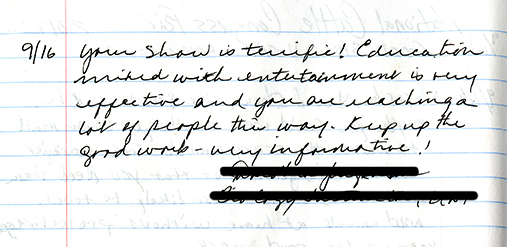 9/16 Your show is terrific! Education
mixed with entertainment is very
effective and you are reaching a
lot of people this way. Keep up the
good work - very informative!